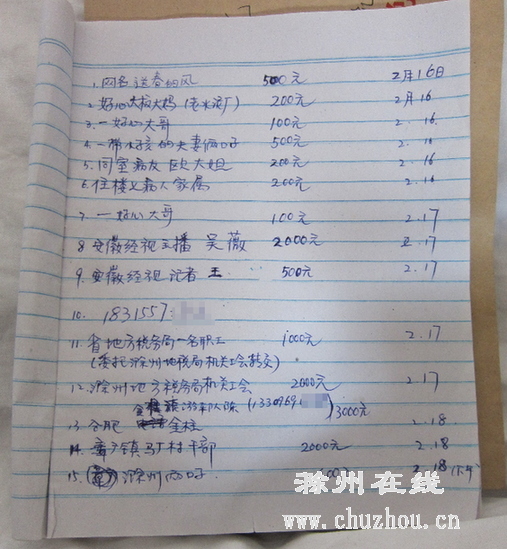 1. 网名送春的风 500元 2月16日
2. 好心大叔大妈(老水泥厂) 200元 2月16
3. 一好心大哥 100元 2.16
4. 一带小孩的夫妻俩 500元 2.16
5. 同室病友 欧大姐 200元 2.16
6. 住楼上病人家属 200元 2.16
7. 一好心大哥 100元 2.17
8 安徽经视主播 吴薇 2000元 2.17
9. 安徽经视记者 王 500元 2.17
10. 1831557
11. 省地方税务局一名职工 1000元 2.17
(委托滁州地税局机关工会转交)
12. 滁州地方税务局机关工会 2000元 2.17
游车队陈 (1330969 )3000元
13 合肥 金柱 2.18
14. 镇马厂村干部 2000元 2.18
15. 滁州 2.18(下午)
滁州在线
www.chuzhou.cn